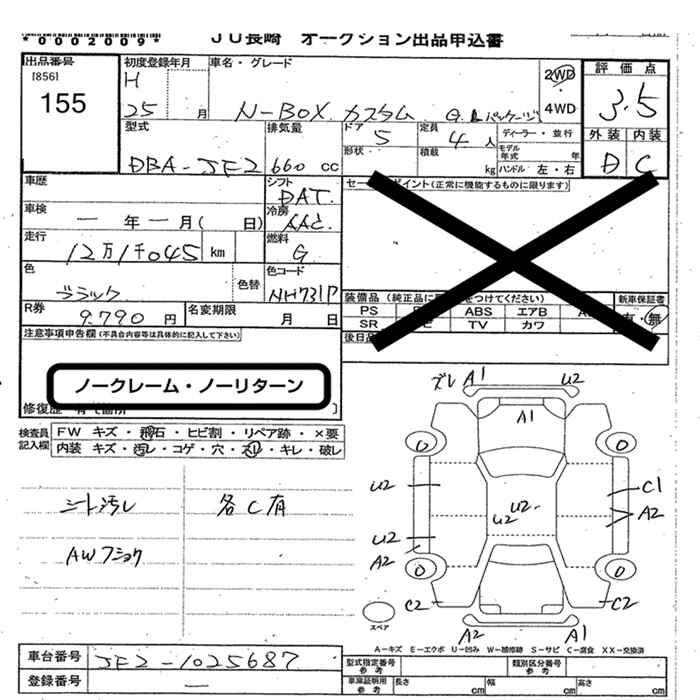 *0002009* JU長崎 オークション出品申込書
出品番号 初度登録年月 車名・グレード 2WD 評価点
[856] H
155 25 月 N-BOX カスタム G Lパッケージ 4WD 3.5
型式 排気量 ドア 5 定員 4人 ディーラー・並行 外装 内装
形状 積載 kg モデル年式 年
DBA-JF2 660 cc ハンドル 左・右 D C
車歴 シフト セールスポイント(正常に機能するものに限ります)
DAT
車検 一年一月( 日) 冷房 AAC
走行 12万1千045 km 燃料 G
色 色替 色コード
ブラック NH731P 装備品(純正品に をつけてください) 新車保証書
R券 名変期限 PS ABS エアB 有・無
9,790円 月 日 SR TV カワ
注意事項申告欄(不具合内容等は具体的に記入して下さい) 後日品
ノークレーム・ノーリターン
修復歴
検査員 FW キズ・飛石・ヒビ割・リペア跡・×要
記入欄 内装 キズ・汚レ・コゲ・穴・スレ・キレ・破レ
ズレ A1 U2
A1
シート汚レ 各C有
AWフショク
U2 U2 U2 C1
A2
U2
A2
C2 C2
スペア
A2 A1
A=キズ E=エクボ U=凹み W=補修跡 S=サビ C=腐食 XX=交換済
車台番号 JF2-1025687 型式指定番号 参考 類別区分番号 参考
登録番号 一 車庫証明用 参考 長さ cm 幅 cm 高さ cm